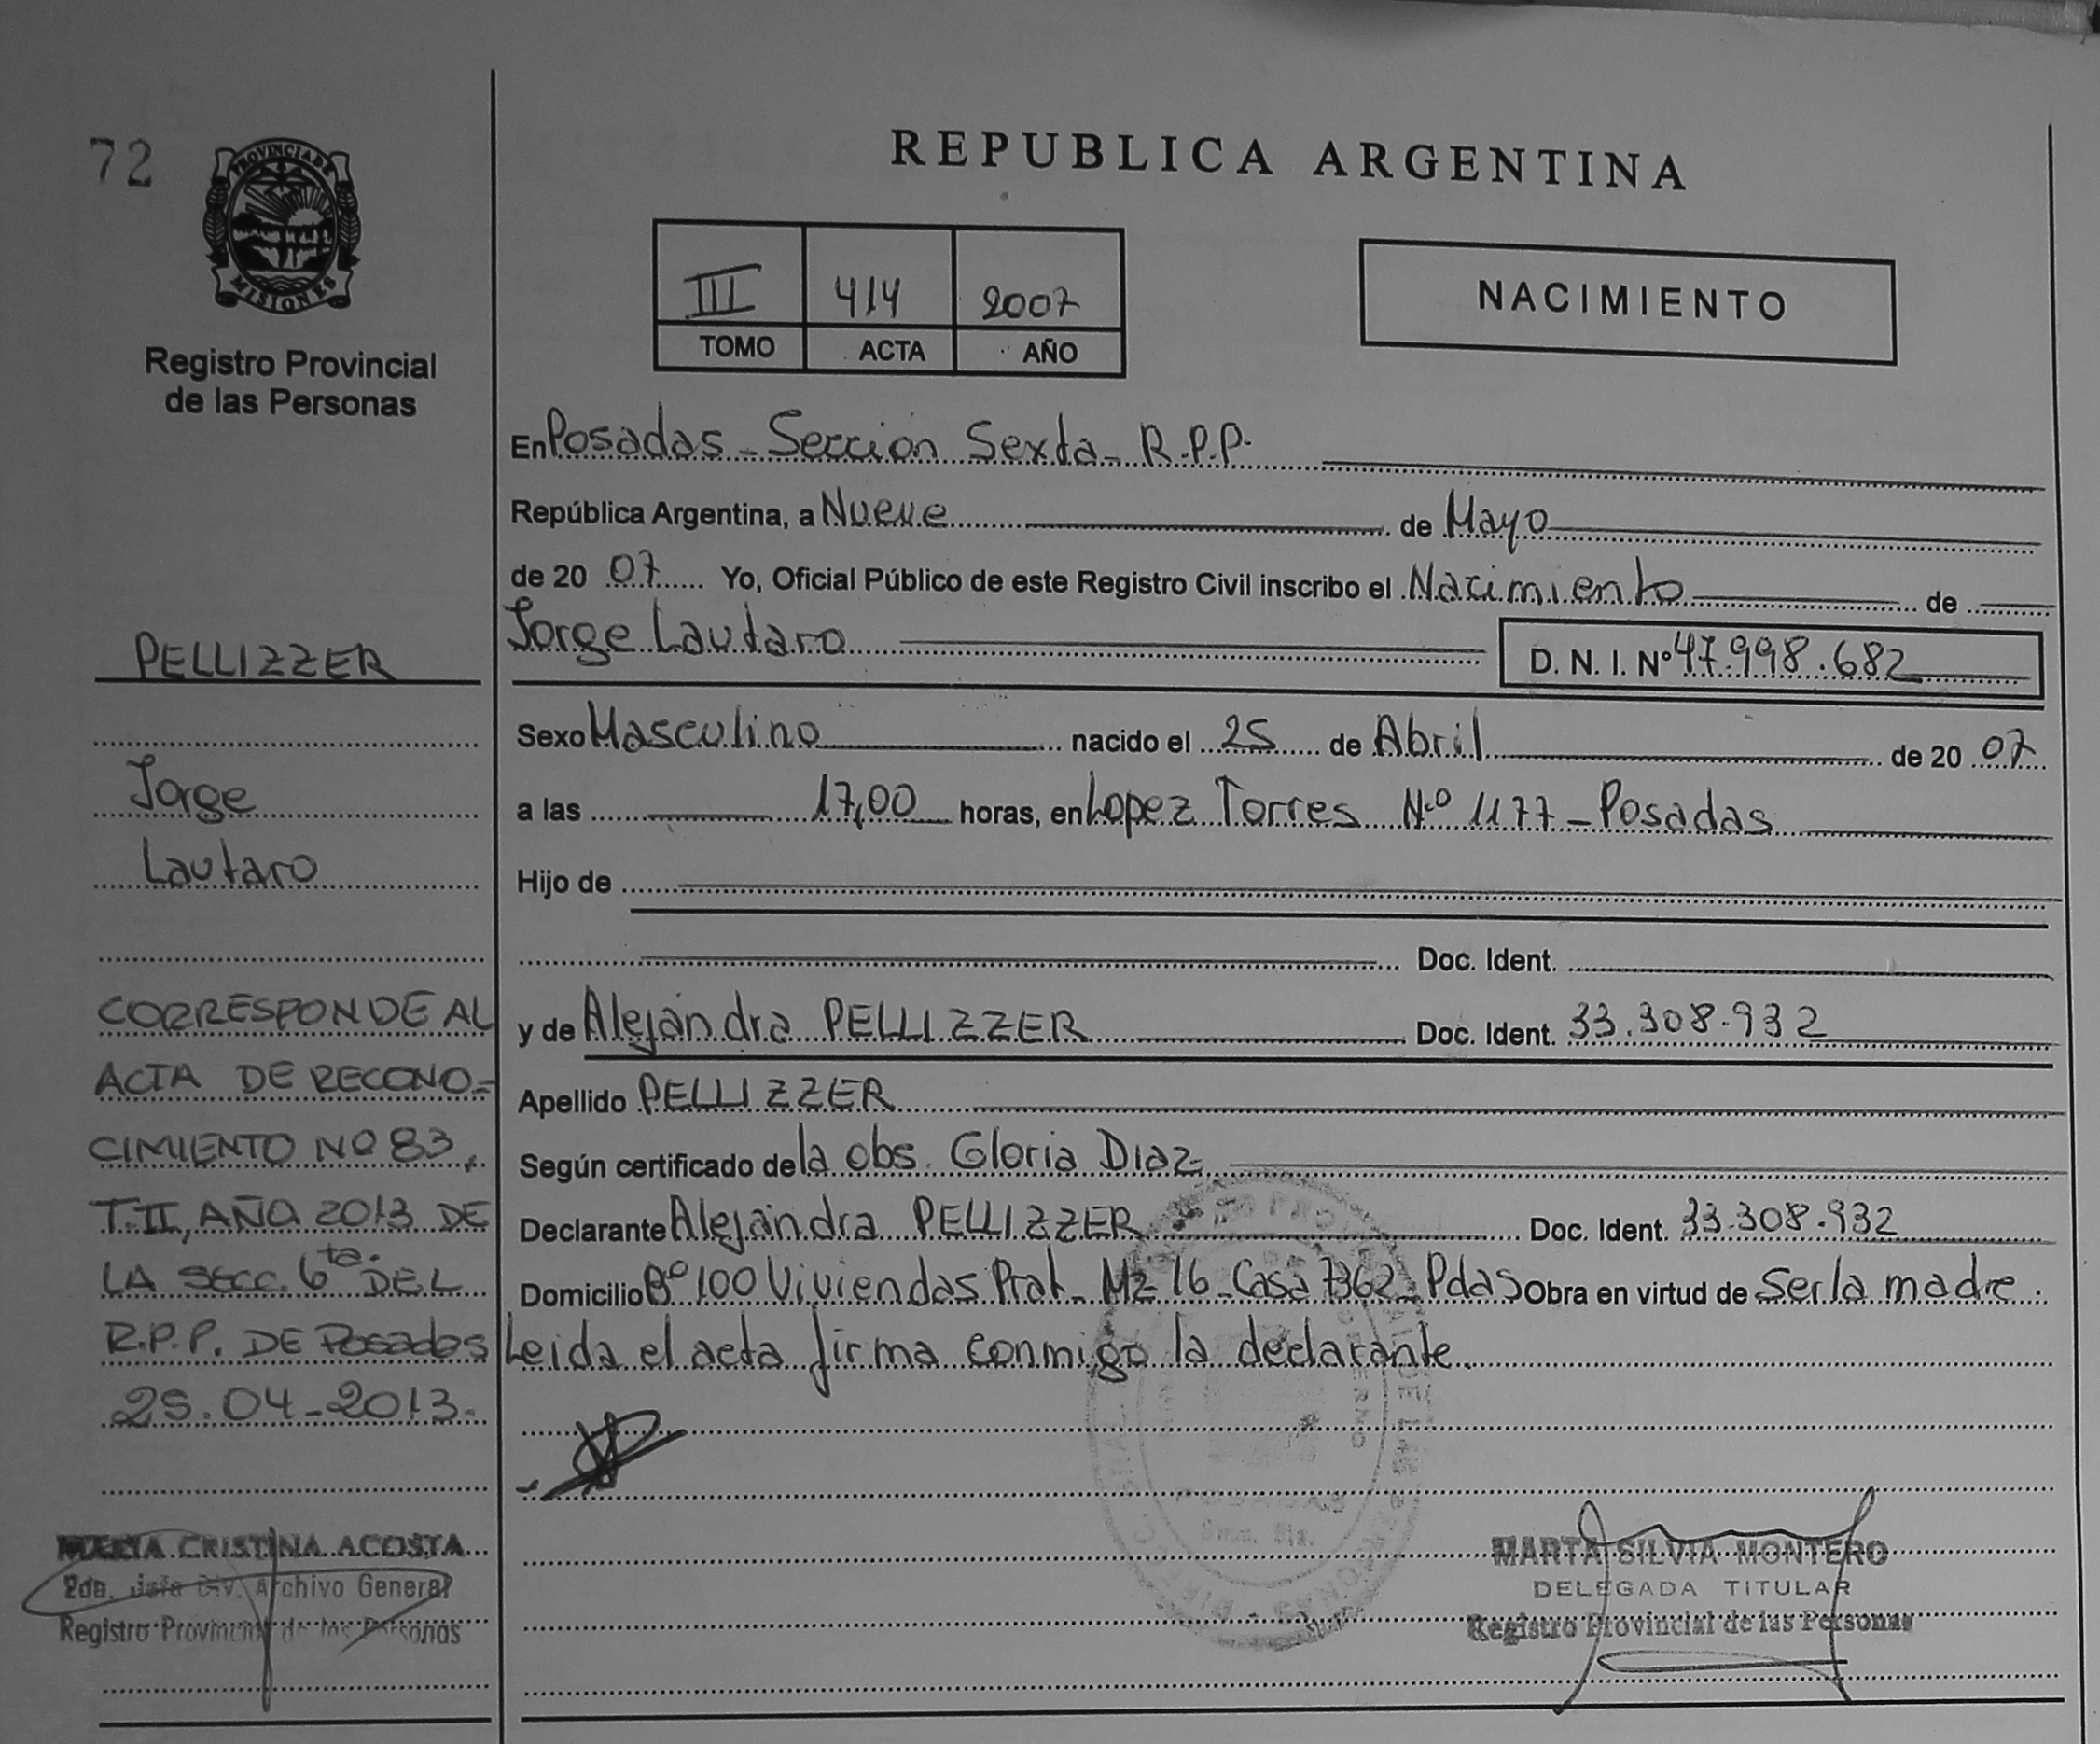 72
PROVINCIA DE
MISIONES
Registro Provincial
de las Personas
PELLIZZER
Jorge
Lautaro
CORRESPONDE AL
ACTA DE RECONO=
CIMIENTO Nº 83,
T.II, AÑO 2013 DE
LA SECC. 6ta. DEL
R.P.P. DE Posadas
25.04-2013.
MARIA CRISTINA ACOSTA
2da. Jefe Div. Archivo General
Registro Provincial de las Personas
REPUBLICA ARGENTINA
III 414 2007
TOMO ACTA AÑO
NACIMIENTO
En Posadas - Seccion Sexta - R.P.P.
República Argentina, a Nueve de Mayo
de 20 07 Yo, Oficial Público de este Registro Civil inscribo el Nacimiento de
Jorge Lautaro D. N. I. Nº 47.998.682
Sexo Masculino nacido el 25 de Abril de 20 07
a las 17,00 horas, en Lopez Torres Nº 1177 - Posadas
Hijo de
Doc. Ident.
y de Alejandra PELLIZZER Doc. Ident. 33.308.932
Apellido PELLIZZER
Según certificado de la obs. Gloria Diaz
Declarante Alejandra PELLIZZER Doc. Ident. 33.308.932
Domicilio Bº 100 Viviendas Prat - Mz 16 - Casa 7362 - Pdas Obra en virtud de Ser la madre.
Leida el acta firma conmigo la declarante.
POSADAS
MARTA SILVIA MONTERO
DELEGADA TITULAR
Registro Provincial de las Personas